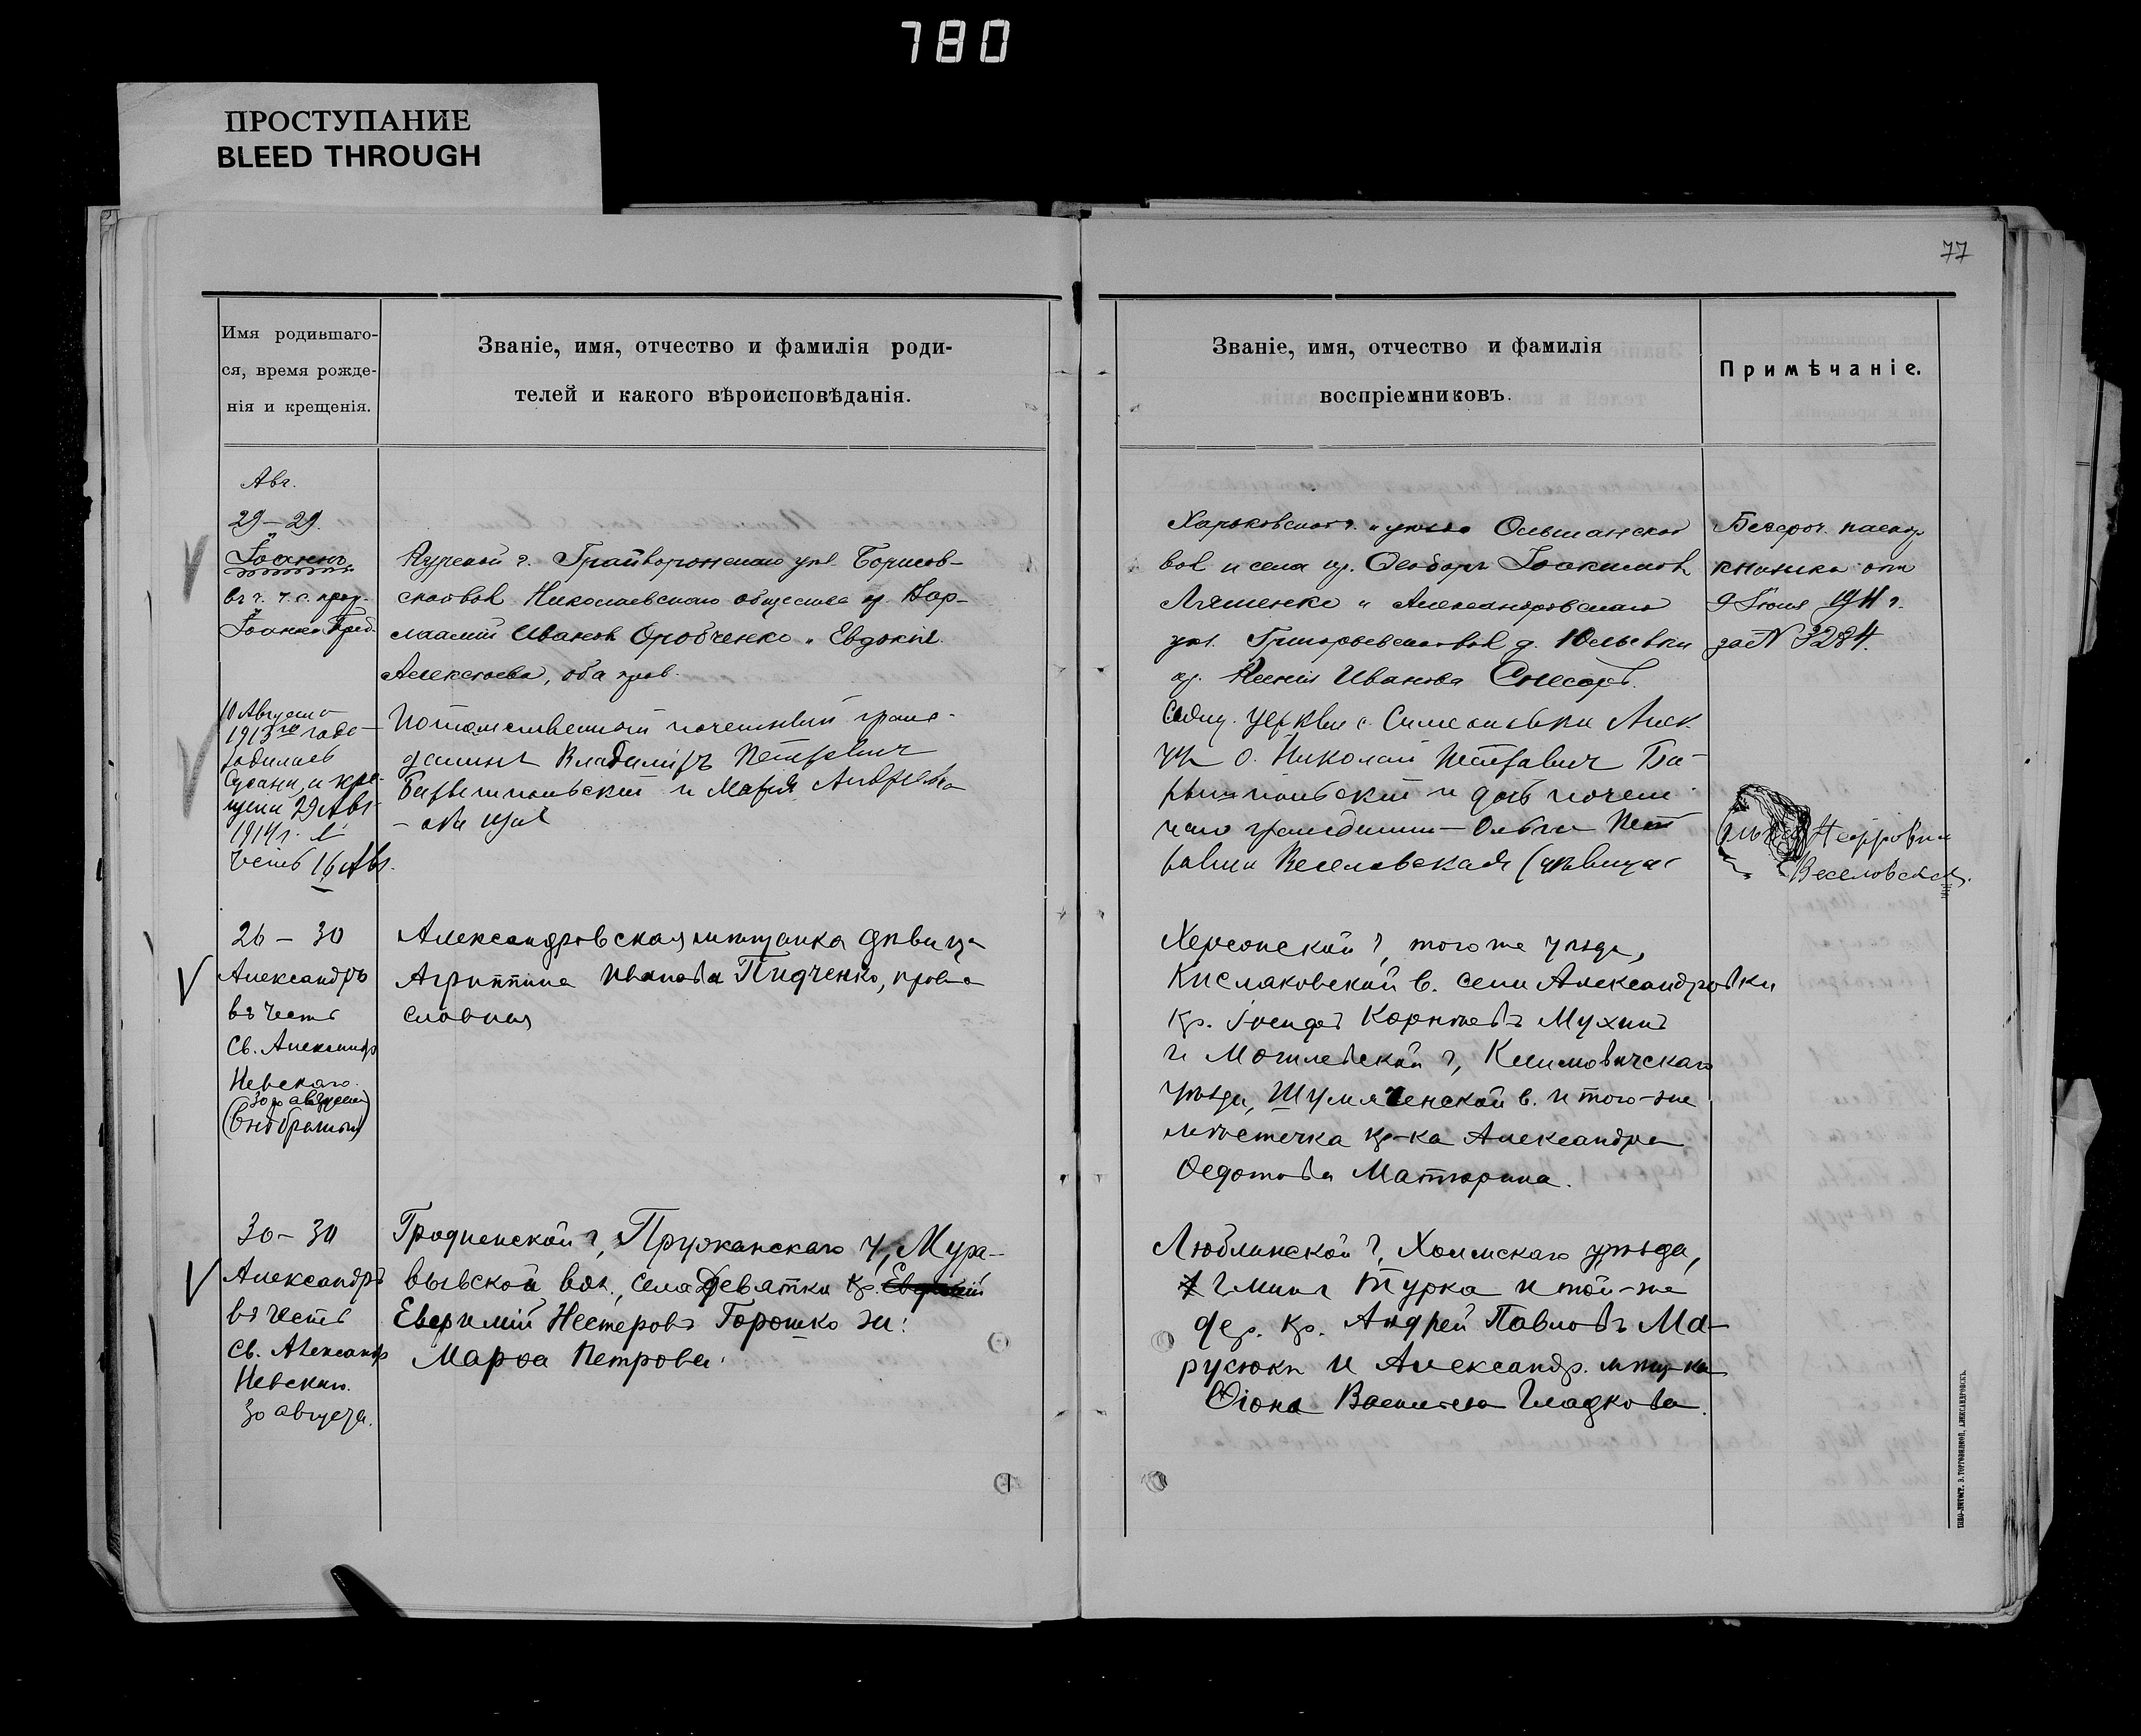 780
ПРОСТУПАНИЕ
BLEED THROUGH
77
Имя родившаго-
ся, время рожде-
нія и крещенія.
Званіе, имя, отчество и фамилія роди-
телей и какого вѣроисповѣданія.
Званіе, имя, отчество и фамилія
воспріемниковъ.
Примѣчаніе.
Авг.
29 – 29.
Іоаннъ
въ ч. ч. с. прор.
Іоанна Пред.
Курской г. Грайворонскаго уѣз. Борисов-
ской вол Николаевскаго общества кр. Вар-
лаамій Иванов Оробченко и Евдокія
Алексѣева, оба прав.
Харьковской г. и уѣзда Ольшанской
вол и села кр. Ѳеодоръ Іоакимов
Ляшенко и Александровскаго
уѣз. Григорьевской вол д. Юльевки
кр. Ксенія Иванова Снесарь.
Безсроч. паспор
книжка от
9 Іюня 1911 г.
за № 3284.
10 Августа
1913го года
родилась
и кре-
щена 29 Авг
1914 г. в
честь 16 Авг.
Потомственный почетный граж-
данинъ Владиміръ Петрович
Барышпольский и Марія Андреевна
Свящ. церкви с. Алек.
у. о. Николай Петрович Ба-
рышпольский и дочь почет
наго гражданина – Ольга Пет
ровна Веселовская (девица
Ольга Петровна
Веселовская.
26 – 30
Александръ
въ честь
Св. Александр
Невскаго.
30го августа
(Внобрачный)
Александровская мѣщанка дѣвица
Агриппина Иванова Пидченко, право
славная
Херсонской г, того же уѣзда,
Кисляковской в. села Александровки
кр. Корнѣевъ Мухинъ
и Могилевской г, Климовичскаго
уѣзда, Шумяченской в. и того-же
мѣстечка кр-ка Александра
Ѳедотова Матюрина.
30 – 30
Александръ
въ честь
Св. Александр
Невскаг.
30 августа.
Гродненской г, Пружанскаго у, Мура-
вьевской вол., села Девятки кр.
Евфимій Нестеровъ Горошко жи:
Марѳа Петрова.
Люблинской г, Холмскаго уѣзда,
гмины Турка и той-же
дер. кр. Андрей Павловъ Ма-
русюкъ и Александр. мѣщ-ка
Ѳіона Васильева Гладкова.
ТИПО-ЛИТОГР. Э. ТОРГОВИЦКОЙ, АЛЕКСАНДРОВСКЪ.